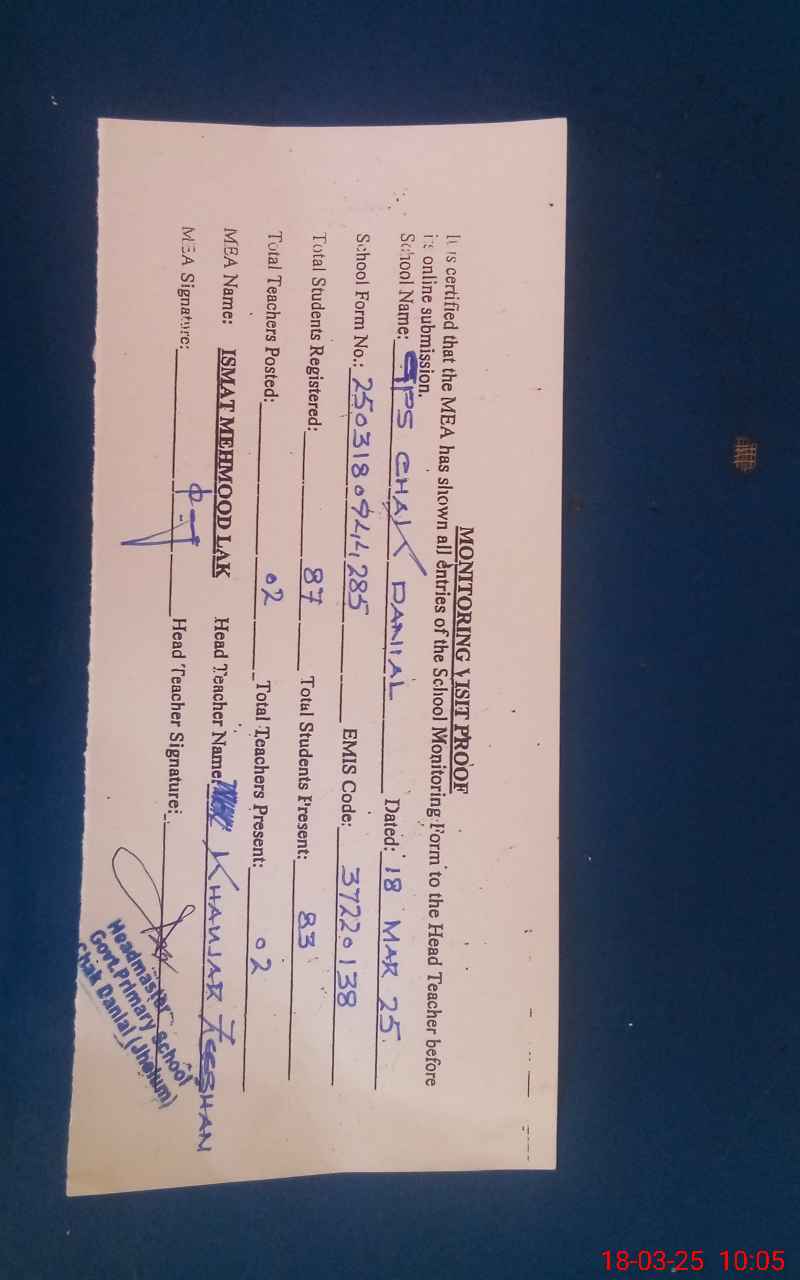 MONITORING VISIT PROOF
It is certified that the MEA has shown all entries of the School Monitoring Form to the Head Teacher before
its online submission.
School Name: GPS CHAK DANIAL Dated: 18 MAR 25
School Form No.: 2503180944285 EMIS Code: 37220138
Total Students Registered: 87 Total Students Present: 83
Total Teachers Posted: 02 Total Teachers Present: 02
MEA Name: ISMAT MEHMOOD LAK Head Teacher Name: KHAWJAR ZEESHAN
MEA Signature: Head Teacher Signature:
Headmaster
Govt.Primary School
Chak Danial (Jhelum)
18-03-25 10:05